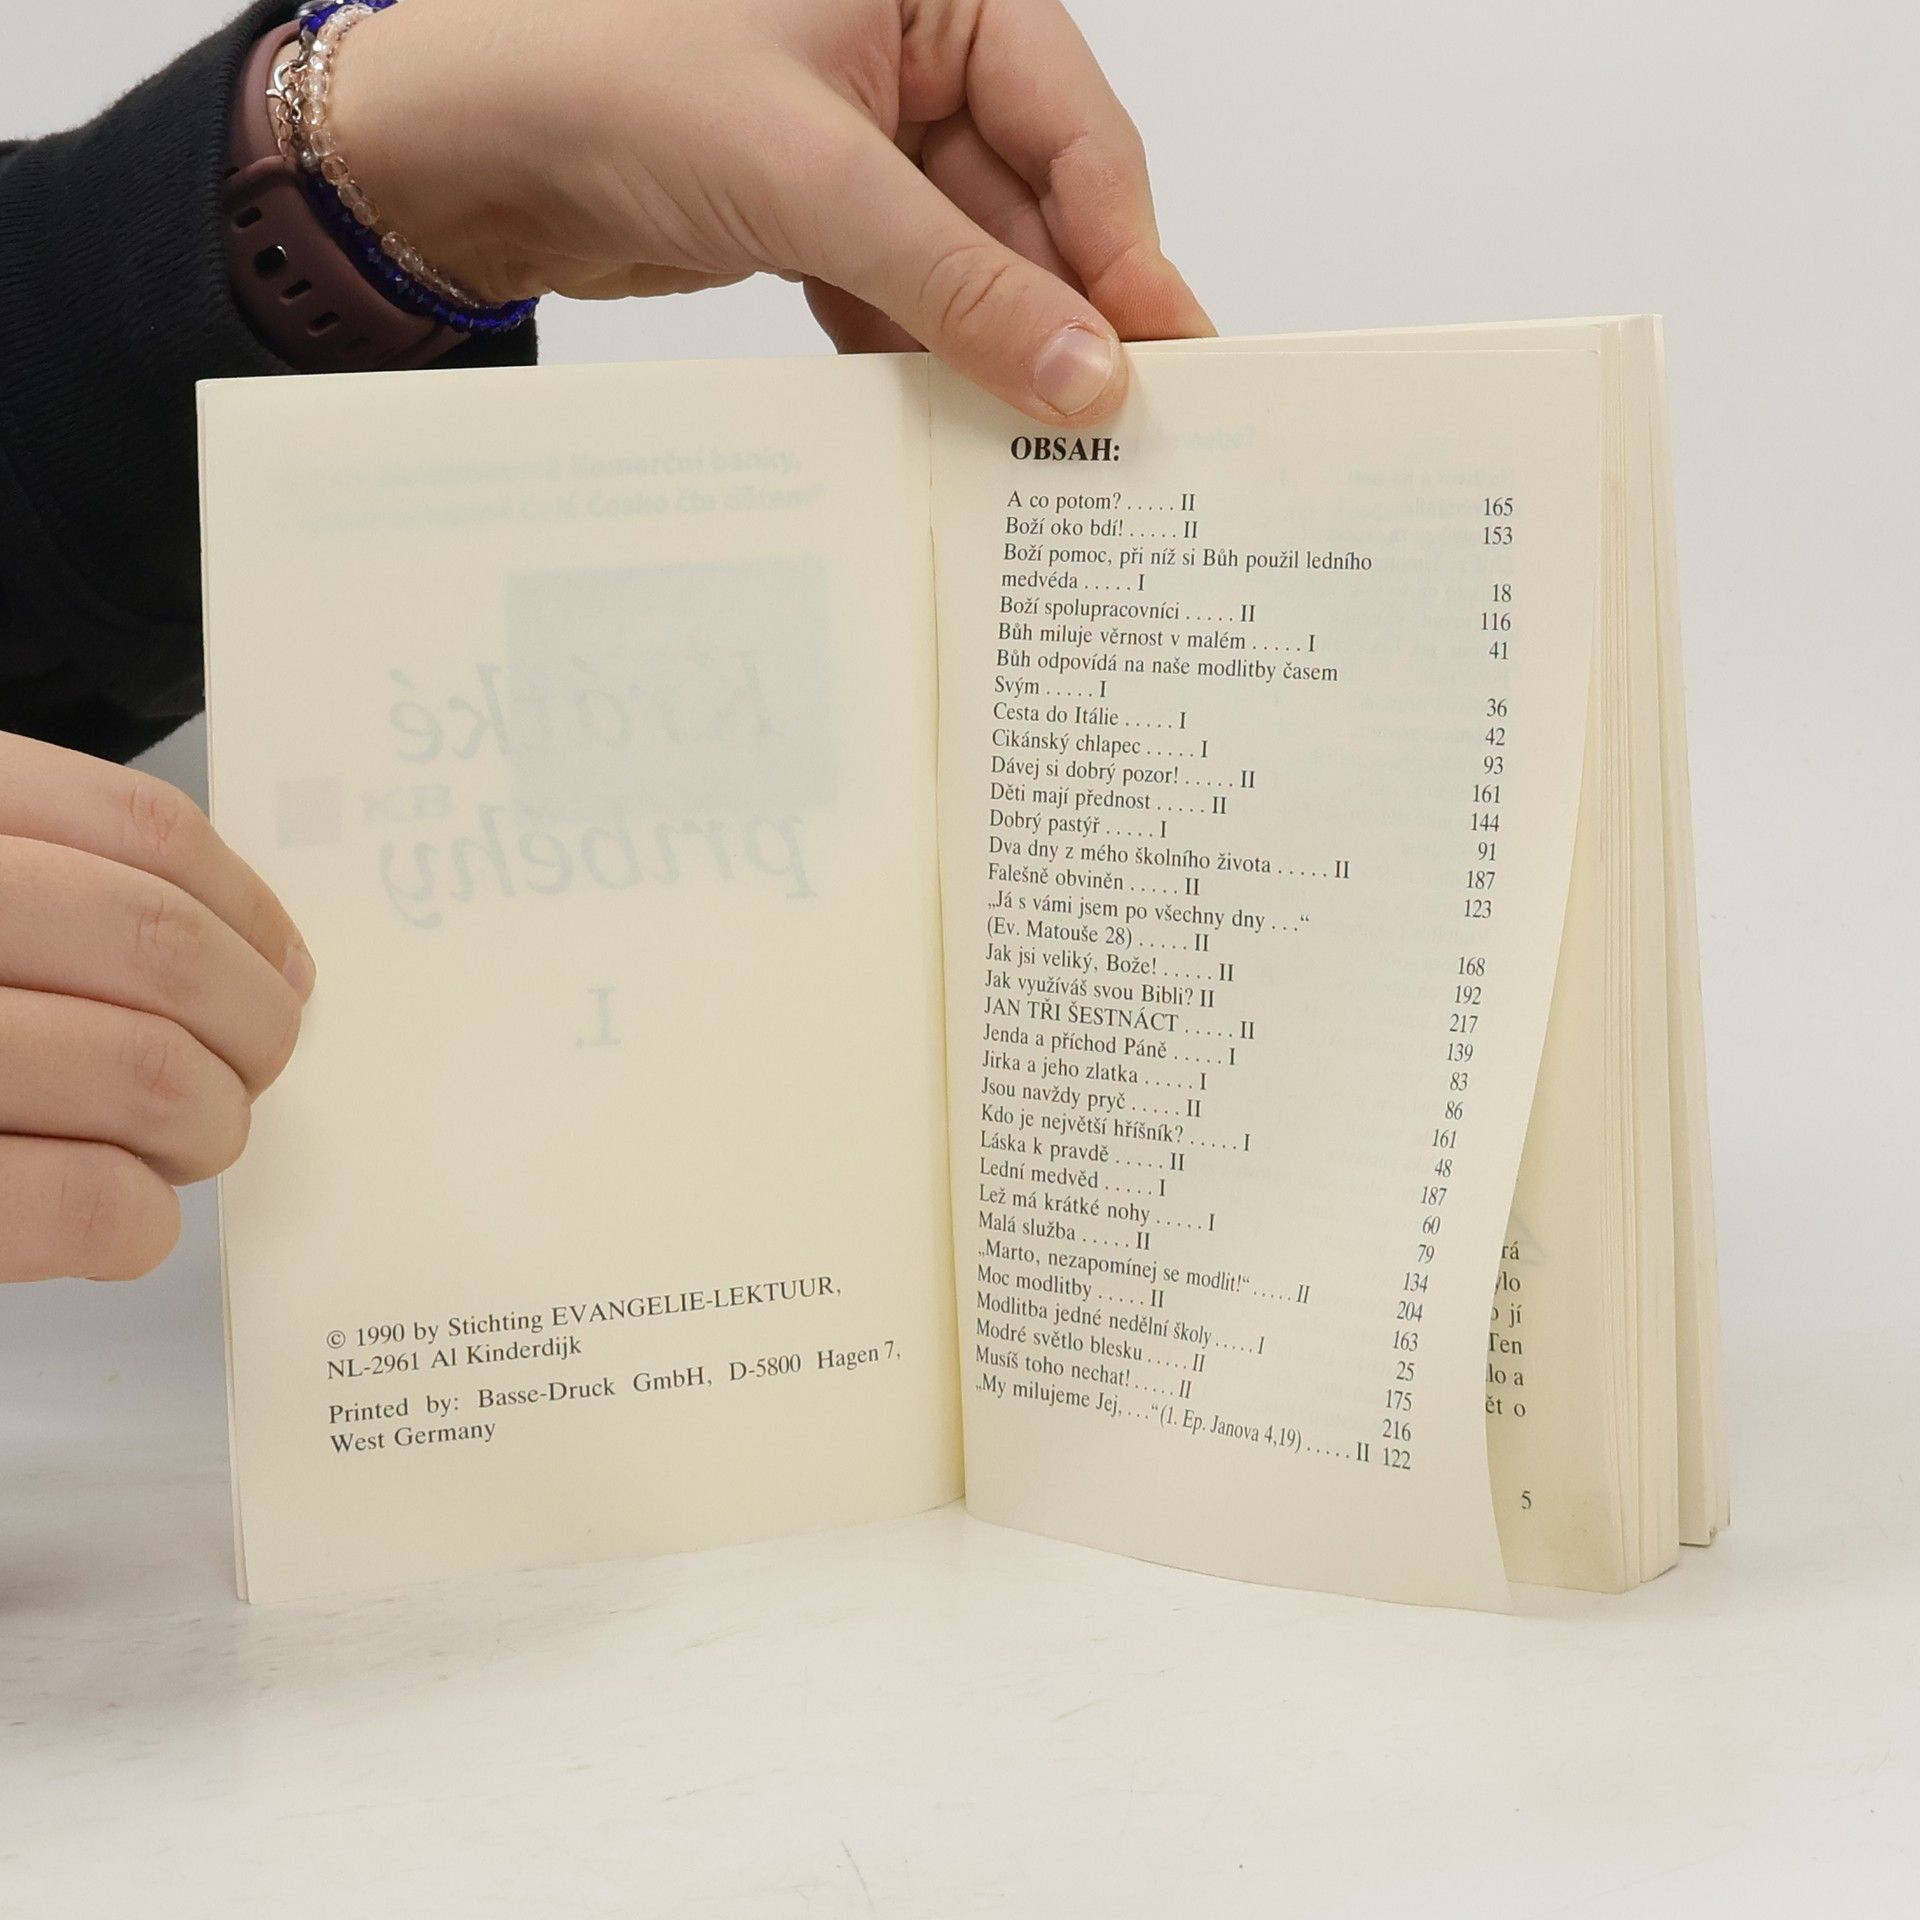 Krátké
příběhy
I.
© 1990 by Stichting EVANGELIE-LEKTUUR,
NL-2961 Al Kinderdijk
Printed by: Basse-Druck GmbH, D-5800 Hagen 7,
West Germany
OBSAH:
A co potom? ..... II 165
Boží oko bdí! ..... II 153
Boží pomoc, při níž si Bůh použil ledního
medvéda ..... I 18
Boží spolupracovníci ..... II 116
Bůh miluje věrnost v malém ..... I 41
Bůh odpovídá na naše modlitby časem
Svým ..... I 36
Cesta do Itálie ..... I 42
Cikánský chlapec ..... I 93
Dávej si dobrý pozor! ..... II 161
Děti mají přednost ..... II 144
Dobrý pastýř ..... I 91
Dva dny z mého školního života ..... II 187
Falešně obviněn ..... II 123
„Já s vámi jsem po všechny dny ...“
(Ev. Matouše 28) ..... II 168
Jak jsi veliký, Bože! ..... II 192
Jak využíváš svou Bibli? II 217
JAN TŘI ŠESTNÁCT ..... II 139
Jenda a příchod Páně ..... I 83
Jirka a jeho zlatka ..... I 86
Jsou navždy pryč ..... II 161
Kdo je největší hříšník? ..... I 48
Láska k pravdě ..... II 187
Lední medvěd ..... I 60
Lež má krátké nohy ..... I 79
Malá služba ..... II 134
„Marto, nezapomínej se modlit!“ ..... II 204
Moc modlitby ..... II 163
Modlitba jedné nedělní školy ..... I 25
Modré světlo blesku ..... II 175
Musíš toho nechat! ..... II 216
„My milujeme Jej, ...“ (1. Ep. Janova 4,19) ..... II 122
rá
ylo
jí
Ten
lo a
ět o
5